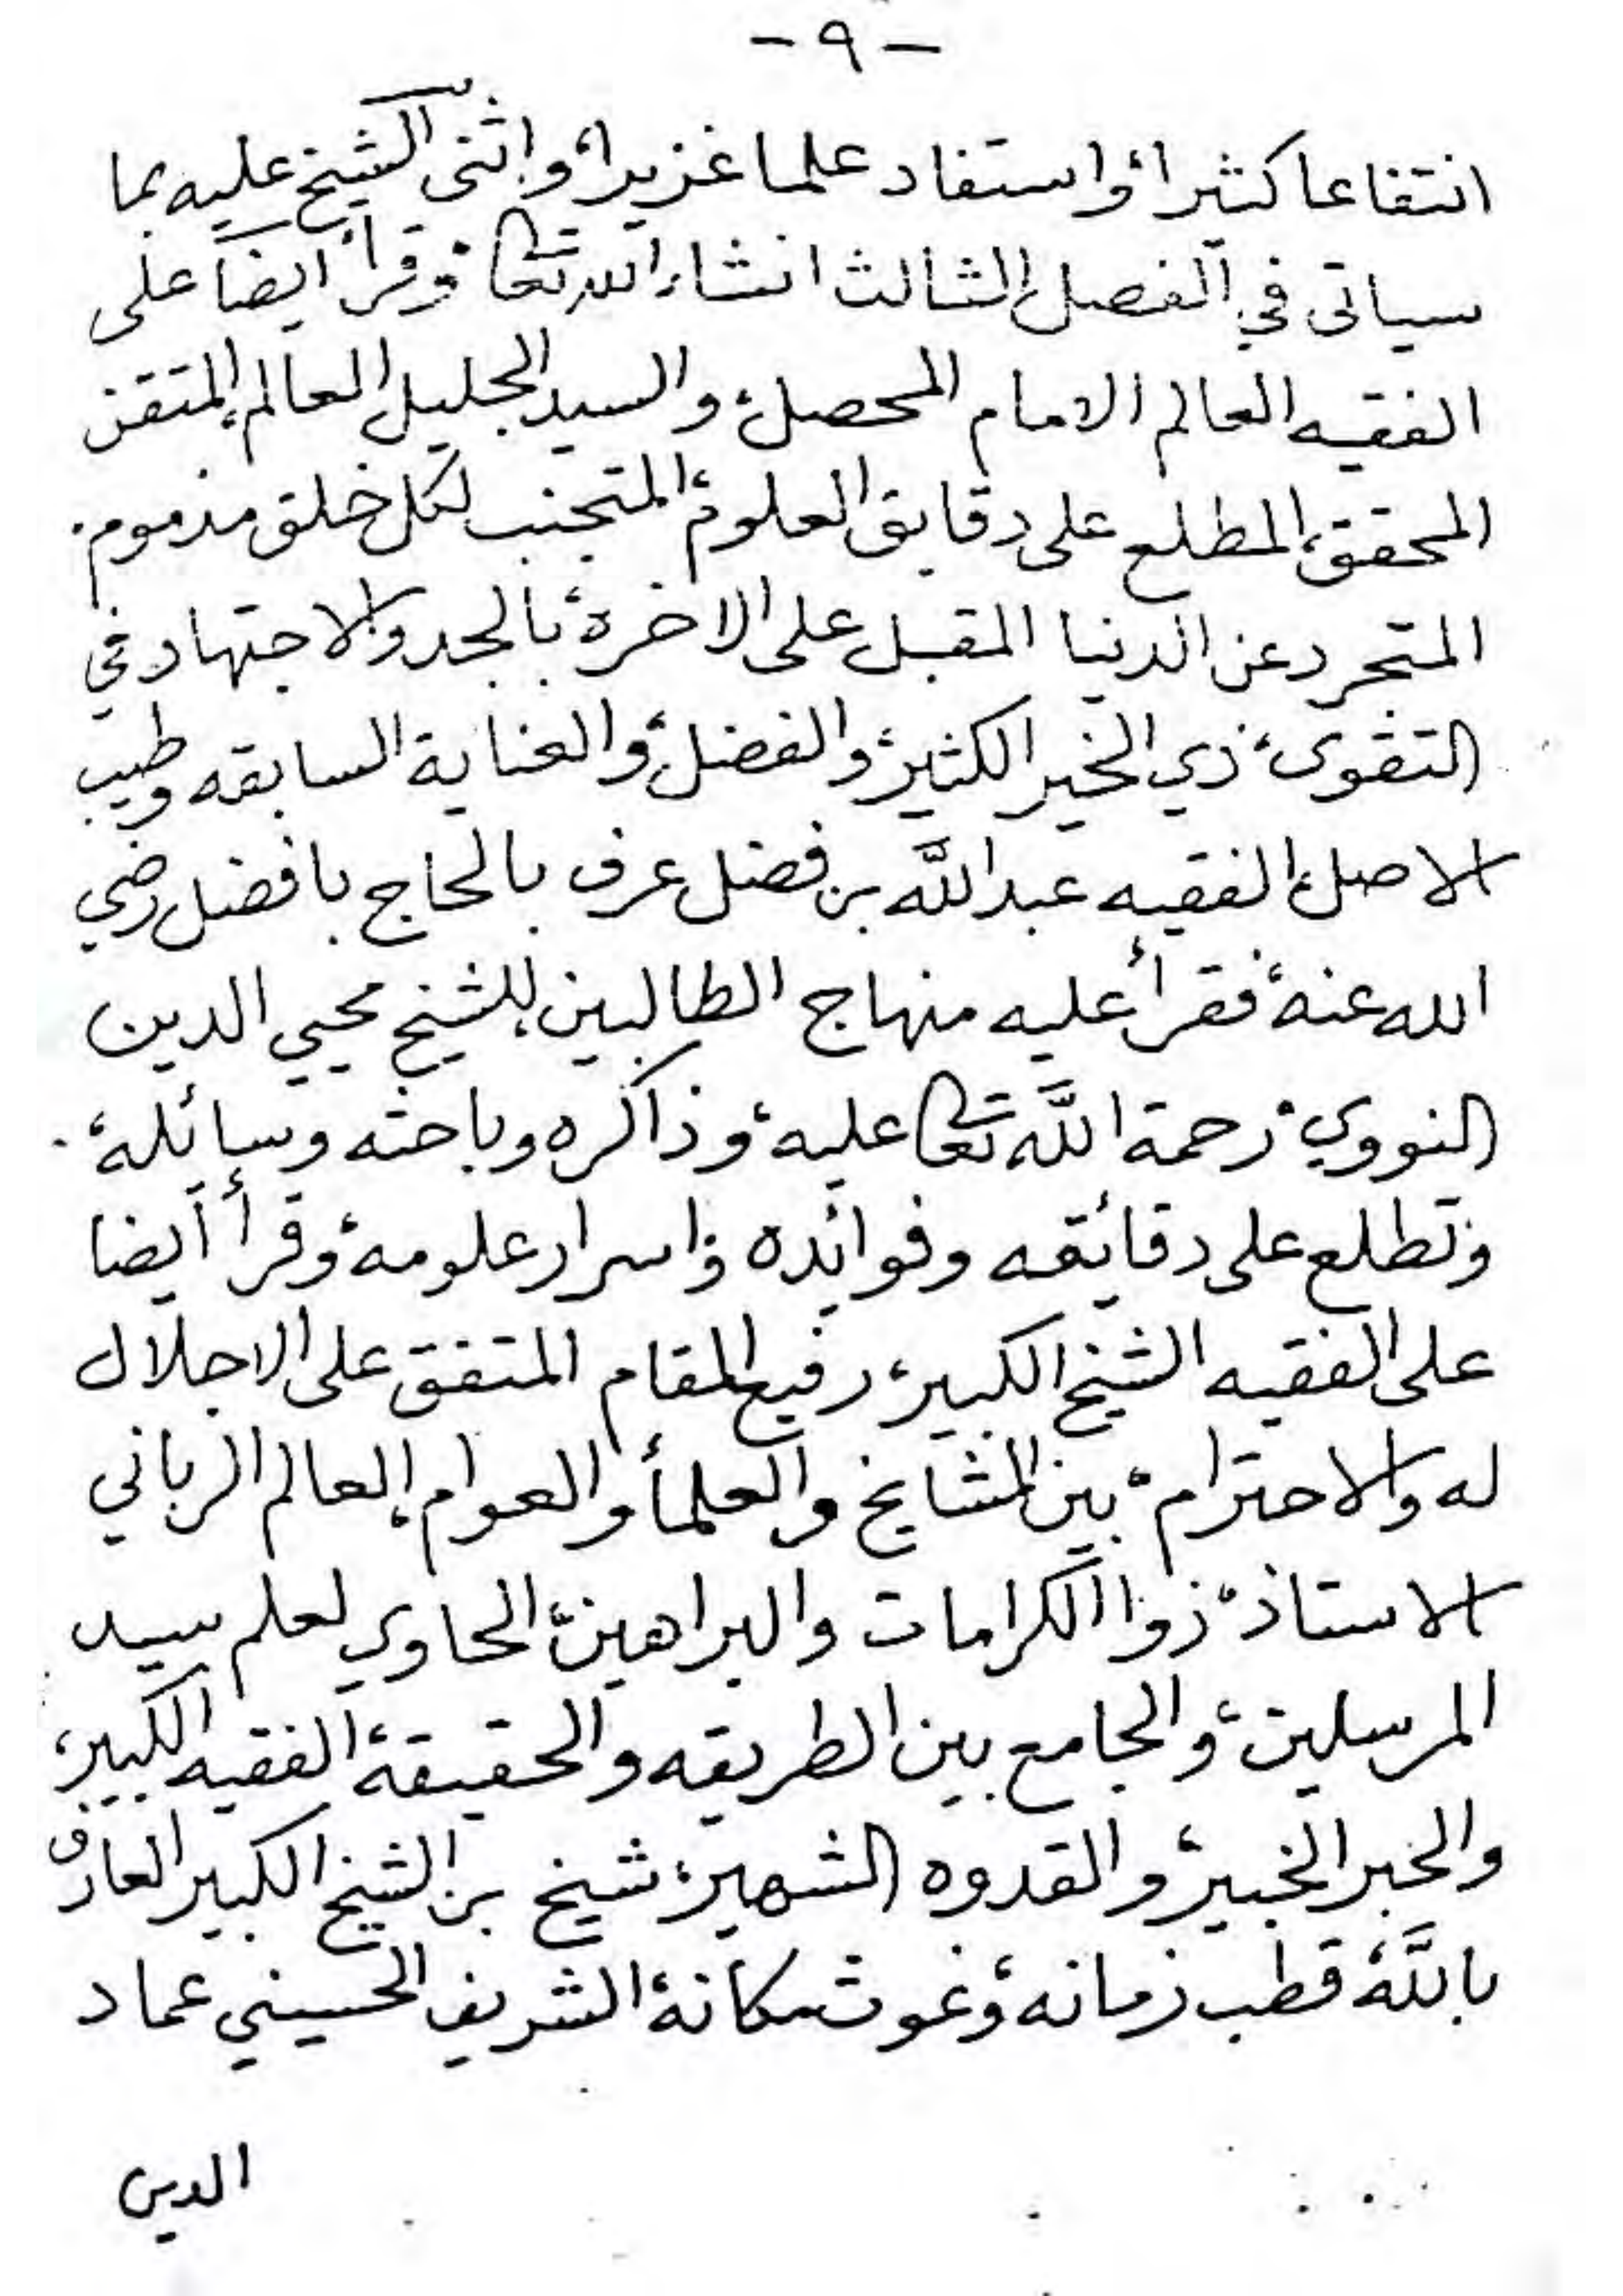 - ٩ -
انتفاعا كثيرا، واستفاد علما غزيرا، واثنى الشيخ عليه بما
سياتى في الفصل الثالث انشاء الله تعا، وقرأ ايضاً على
الفقيه العالم الامام المحصل، والسيد الجليل العالم، المتقن
المحقق، المطلع على دقايق العلوم، المتجنب لكل خلق مذموم.
المتجرد عن الدنيا المقبل على الاخرة، بالجد والاجتهاد في
التقوى، ذي الخير الكثير، والفضل، والعناية السابقه وطيب
الاصل، الفقيه عبدالله بن فضل عرف بالحاج بافضل رضي
الله عنه، فقرأ عليه منهاج الطالبين، للشيخ محيي الدين
النووي، رحمة الله تعا عليه، وذاكره وباحثه وسائله،
وتطلع على دقائقه وفوائده واسرار علومه، وقرأ أيضا
على الفقيه الشيخ الكبير، رفيع المقام المتفق على الاجلال
له والاحترام، بين المشايخ والعلمأ والعوام، العالم الرباني
الاستاذ، ذوا الكرامات والبراهين، الحاوي لعلم سيد
المرسلين، والجامع بين الطريقه والحقيقة، الفقيه الكبير،
والحبر الخبير، والقدوه الشهير، شيخ بن الشيخ الكبير العارف
بالله، قطب زمانه، وغوث مكانة، الشريف الحسيني عماد
الدين